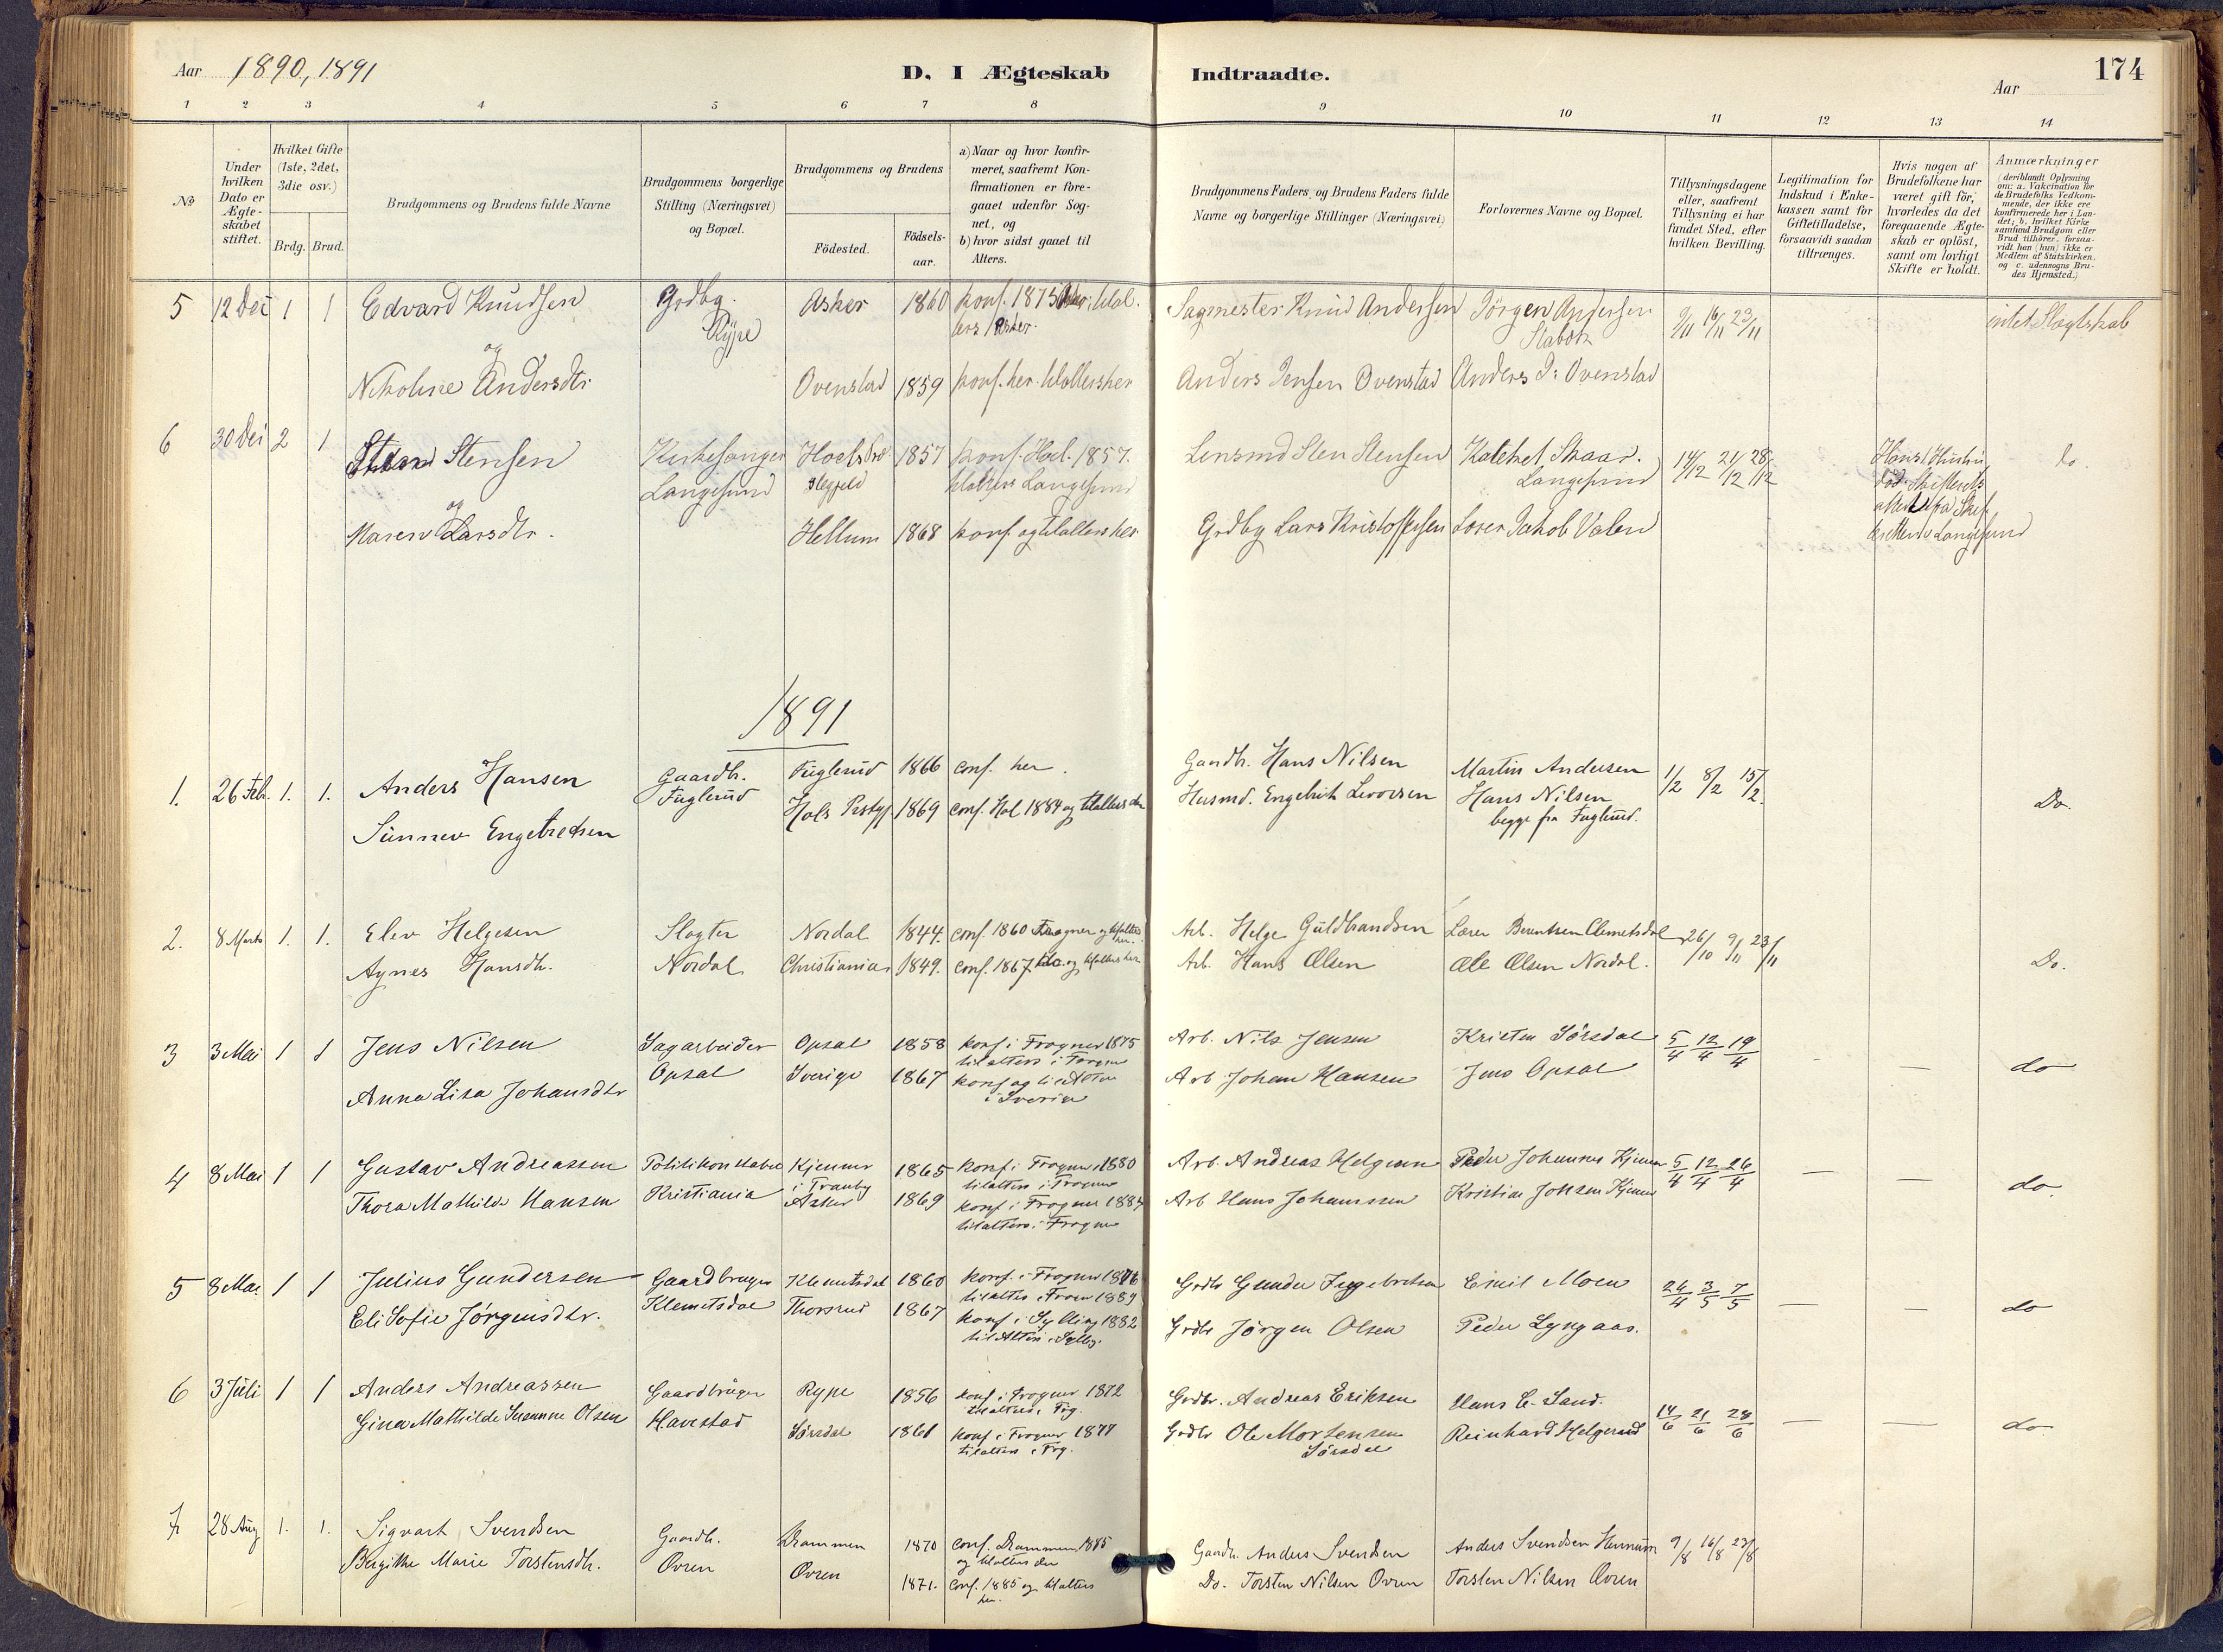 Aar 1890, 1891
D. I Ægteskab Indtraadte.
Aar
174
1 2 3 4 5 6 7 8 9 10 11 12 13 14
No
Under hvilken Dato er Ægteskabet stiftet.
Hvilket Gifte (1ste, 2det, 3die osv.)
Brdg. Brud.
Brudgommens og Brudens fulde Navne
Brudgommens borgerlige Stilling (Næringsvei) og Bopæl.
Brudgommens og Brudens
Födested.
Födsels-aar.
a) Naar og hvor konfirmeret, saafremt Konfirmationen er foregaaet udenfor Sognet, og
b) hvor sidst gaaet til Alters.
Brudgommens Faders og Brudens Faders fulde Navne og borgerlige Stillinger (Næringsvei)
Forlovernes Navne og Bopæl.
Tillysningsdagene eller, saafremt Tillysning ei har fundet Sted, efter hvilken Bevilling.
Legitimation for Indskud i Enkekassen samt for Giftetilladelse, forsaavidt saadan tiltrænges.
Hvis nogen af Brudefolkene har været gift för, hvorledes da det foregaaende Ægteskab er oplöst, samt om lovligt Skifte er holdt.
Anmærkninger (deriblandt Oplysning om: a. Vakcination for de Brudefolks Vedkommende, der ikke ere konfirmerede her i Landet; b. hvilket Kirkesamfund Brudgom eller Brud tilhörer, forsaavidt han (hun) ikke er Medlem af Statskirken, og c. udensogns Brudes Hjemsted.)
5 12 Dec 1 1 Edvard Knudsen Grdbg. Asker 1860 konf. 1875 Asker, til al- Sagmester Knud Andersen Jörgen Andersen 9/11 16/11 23/11 intet Slægtskab
og Rype ters Asker. Stabæk
Nikoline Andersdtr Ovenstad 1859 konf. her. til alters her Anders Jensen Ovenstad Anders J. Ovenstad
6 30 Dec 2 1 Sten Stensen Kirkesanger Hols 1857 konf. Hol. Lensmd Sten Stensen Katekel Skaar. 14/12 21/12 28/12 Hans Hustru do.
og Langesund til alters Langesund Langesund død.
Maren Larsdtr. Hellum 1868 konf. og til alters her Grdbg Lars Kristoffersen Lærer Jakob Valen Langesund
1891
1. 26 Febr. 1. 1. Anders Hansen Gaardb. Fuglerud 1866 conf. her. Gaardb. Hans Nilsen Martin Andersen 1/2 8/2 15/2 Do.
Sunnev Engebretsen Fuglerud Hols Prstgj. 1869 conf. Hol 1884 og til alters der Husmd. Engebrik Hans Nilsen
begge fra Fuglerud.
2. 8 Marts 1. 1. Elev Helgesen Slagter Nordal 1844. conf. 1860 Fragner og til alters her. Arb. Helge Guldbrandsen Lærer Berentsen Clemetsdal 26/10 9/11 23/11 Do.
Agnes Hansdtr. Nordal Christiania 1849. conf. 1867. og til alters her Arb. Hans Olsen Ole Olsen Nordal.
3 3 Mai 1 1 Jens Nilsen Sagarbeider Opsal 1858 konf. i Frogner 1875 Arb. Nils Jensen Kristen Sörsdal 5/4 12/4 19/4 — do
til alters i Frogner
Anna Lisa Johansdtr Opsal Sverige 1867 konf og til Alters Arb Johan Hansen Jens Opsal
i Sverige
4 8 Mai 1 1 Gustav Andreassen Politikonstabel Kjenner 1865 konf i Frogner 1880 Arb. Andreas Helgesen Peder Johannes Kjenner 5/4 12/4 26/4 — — do.
i Tranby til alters i Frogner
Thora Mathilde Hansen Kristiania Asker 1869 konf i Frogner 1884 Arb Hans Johanssen Kristian Johsen Kjenner
til alters i Frogner
5 8 Mai 1 1 Julius Gundersen Gaardbruger Klemetsdal 1860 konf. i Frogner 1876 Grdbr Gunder Ingebretsen Emil Moen 26/4 3/5 7/5 — — do
til alters i Frogner 1889
Eli Sofie Jørgensdtr. Klemetsdal Thorsrud 1867 konf i Sylling 1882 Grdbr Jørgen Olsen Peder Lyngaas.
til Alters i Sylling.
6 3 Juli 1 1 Anders Andreassen Gaardbruger Rype 1856 konf i Frogner 1872 Grdbr. Andreas Eriksen Hans C. Sand. 14/6 21/6 28/6 — — do
til alters i Frg.
Gina Mathilde Susanne Olsen Havestad Sørsdal 1861 konf i Frogner 1877 Grdbr Ole Mortensen Reinhard Helgerud
til alters i Frg. Sørsdal
7 28 Aug 1. 1. Sigvart Svendsen Gaardb. Drammen 1870 conf. Drammen 1885 Gaardb. Anders Svendsen Anders Svendsen Hennum 9/8 16/8 23/8
og til alters der
Bergithe Marie Torstensdtr. Ovren Ovren 1871. conf. 1885 og til alters Do. Torsten Nilsen Ovren Torsten Nilsen Ovren
her.